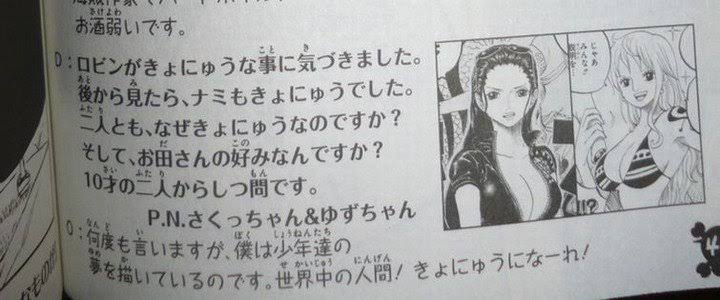 お酒弱いです。
D:ロビンがきょにゅうな事に気づきました。
後から見たら、ナミもきょにゅうでした。
二人とも、なぜきょにゅうなのですか？
そして、お田さんの好みなんですか？
10才の二人からしつ問です。
P.N.さくっちゃん&ゆずちゃん
O:何度も言いますが、僕は少年達の
夢を描いているのです。世界中の人間！きょにゅうになーれ！
じゃあ
みんな!!
!!?